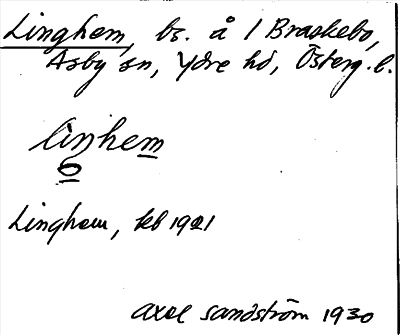 Linghem, bs. å 1 Braskebo,
Asby sn, Ydre hd, Österg. l.
liŋhem
Linghem, kb 1921
Axel Sandström 1930